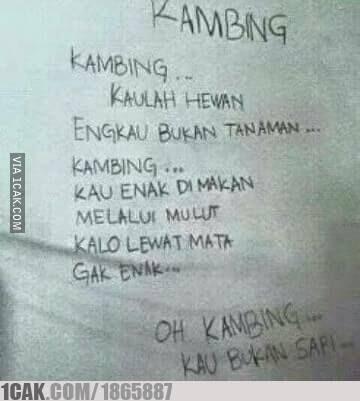 KAMBING
KAMBING...
KAULAH HEWAN
ENGKAU BUKAN TANAMAN...
KAMBING...
KAU ENAK DI MAKAN
MELALUI MULUT
KALO LEWAT MATA
GAK ENAK...
OH KAMBING...
KAU BUKAN SAPI...
VIA 1CAK.COM
1CAK.COM/1865887